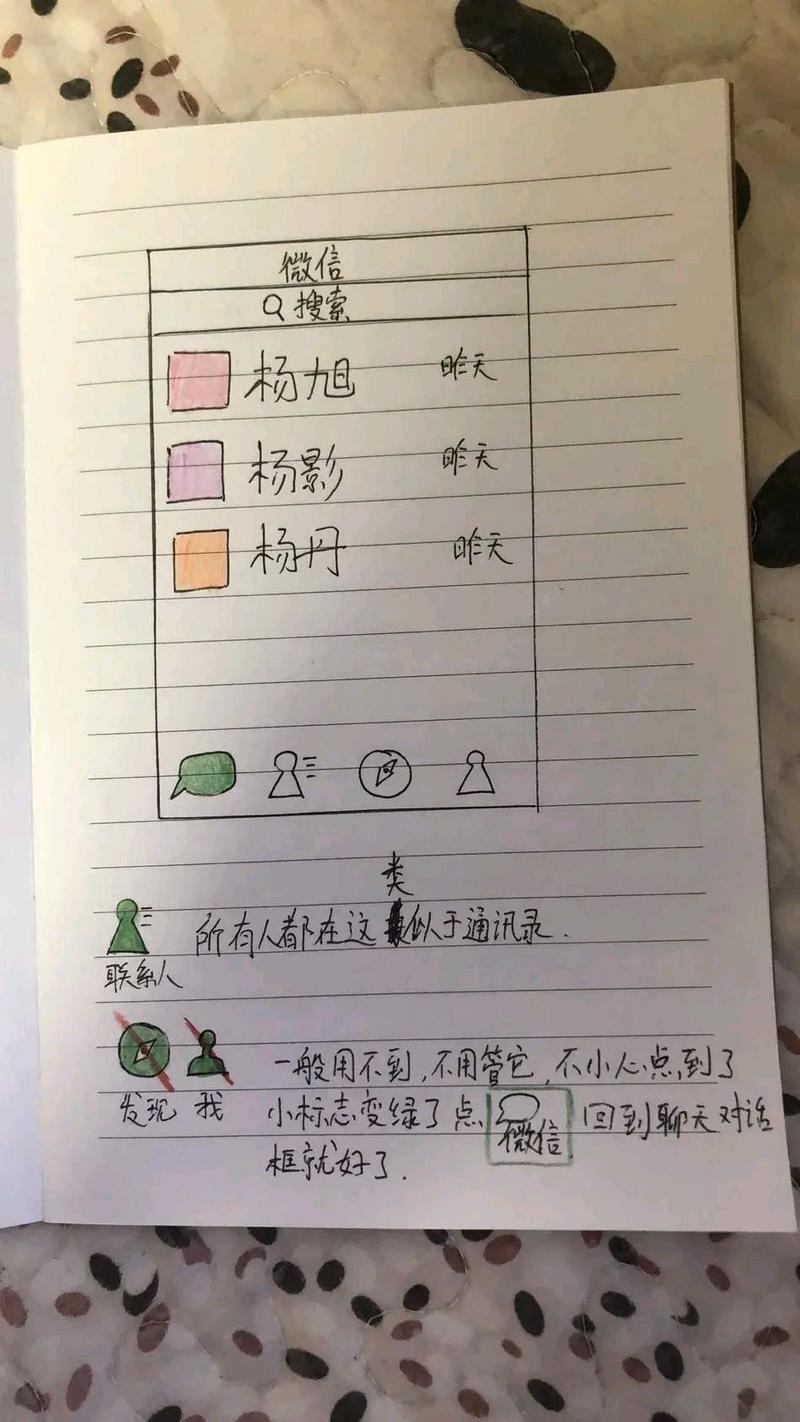 微信
搜索
杨旭 昨天
杨影 昨天
杨丹 昨天
类
所有人都在这似于通讯录.
联系人
一般用不到,不用管它,不小心点到了
发现 我 小标志变绿了点 微信 回到聊天对话
框就好了.